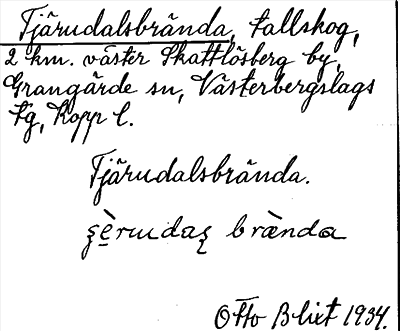 Tjärudalsbrända, tallskog,
2 km. väster Skattlösberg by,
Grangärde sn, Västerbergslags
tg, Kopp l.
Tjärudalsbrända.
brànda
Otto Blixt 1934.